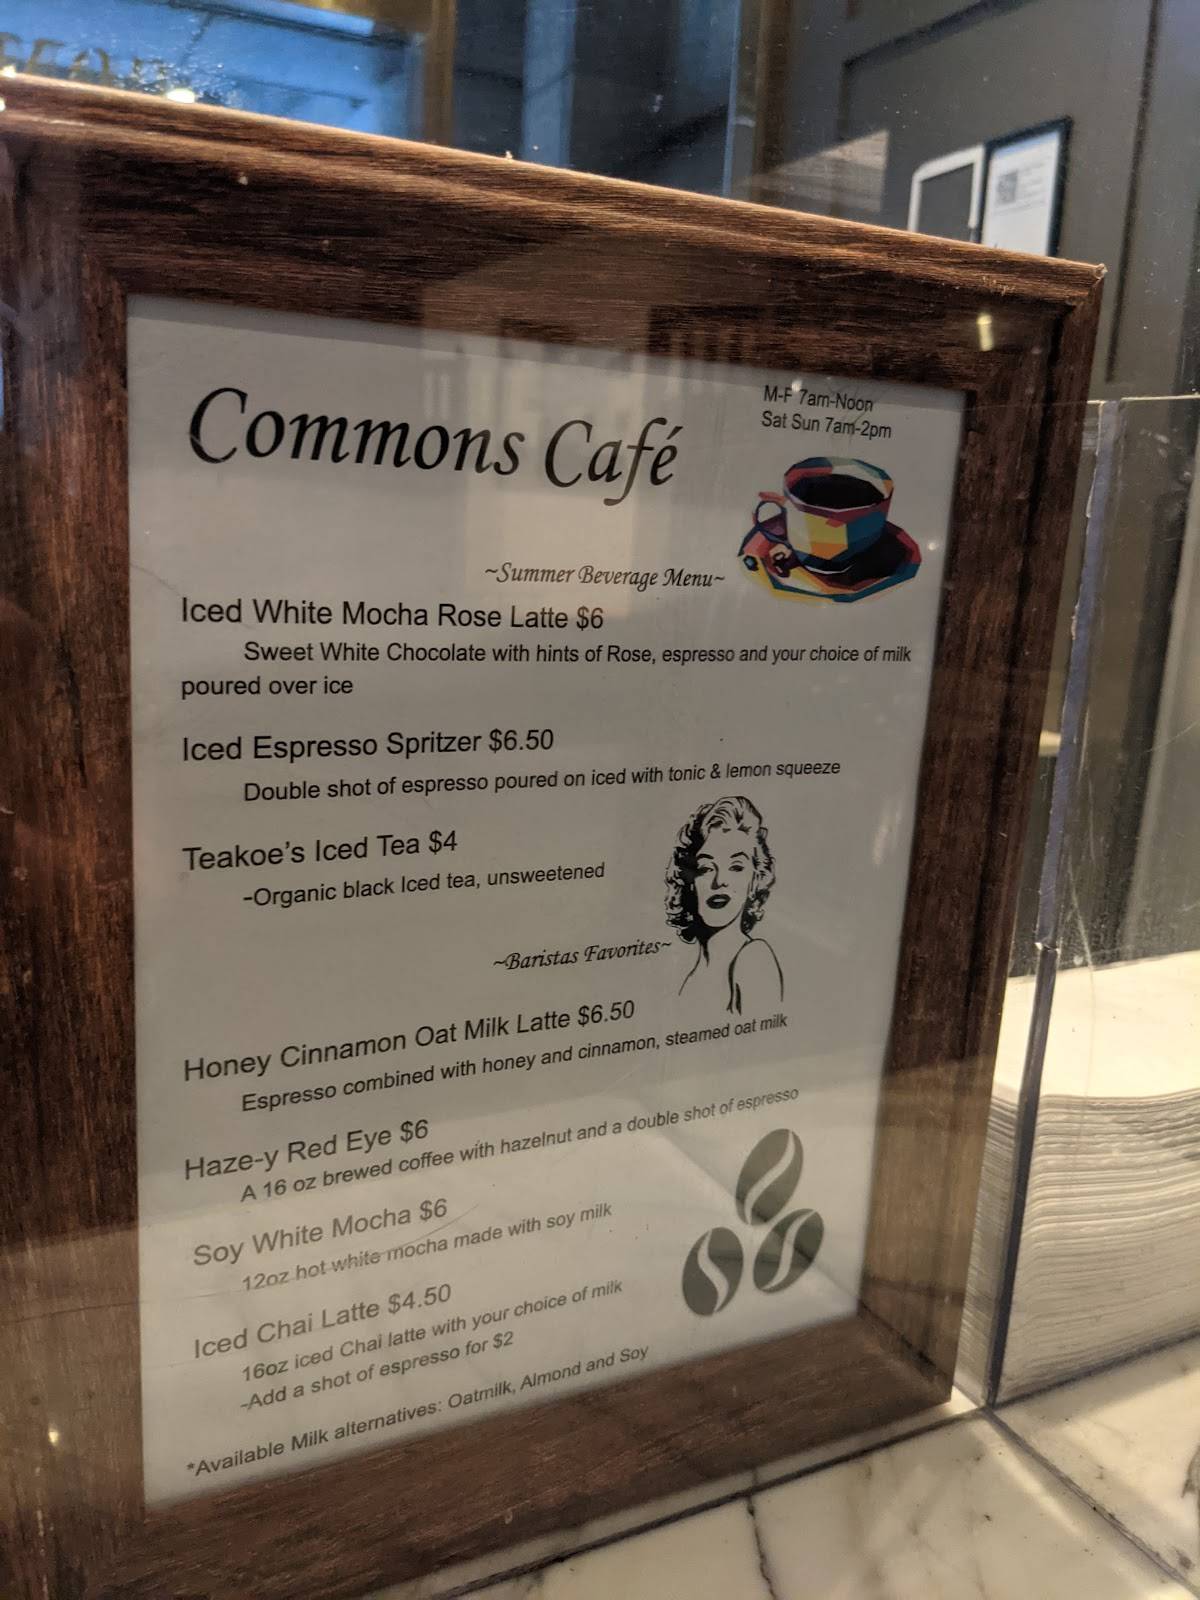 Commons Café
M-F 7am-Noon
Sat Sun 7am-2pm
~Summer Beverage Menu~
Iced White Mocha Rose Latte $6
Sweet White Chocolate with hints of Rose, espresso and your choice of milk
poured over ice
Iced Espresso Spritzer $6.50
Double shot of espresso poured on iced with tonic & lemon squeeze
Teakoe's Iced Tea $4
-Organic black Iced tea, unsweetened
~Baristas Favorites~
Honey Cinnamon Oat Milk Latte $6.50
Espresso combined with honey and cinnamon, steamed oat milk
Haze-y Red Eye $6
A 16 oz brewed coffee with hazelnut and a double shot of espresso
Soy White Mocha $6
12oz hot white mocha made with soy milk
Iced Chai Latte $4.50
16oz iced Chai latte with your choice of milk
-Add a shot of espresso for $2
*Available Milk alternatives: Oatmilk, Almond and Soy